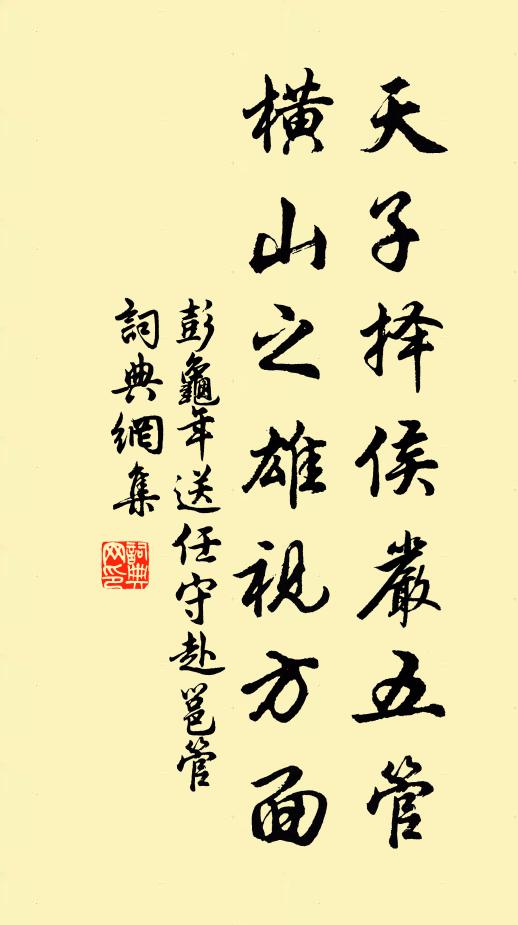 天子择侯嚴五管
横山之雄視方面
彭龜年送任守赴邕管
詞典網集
詞典网印